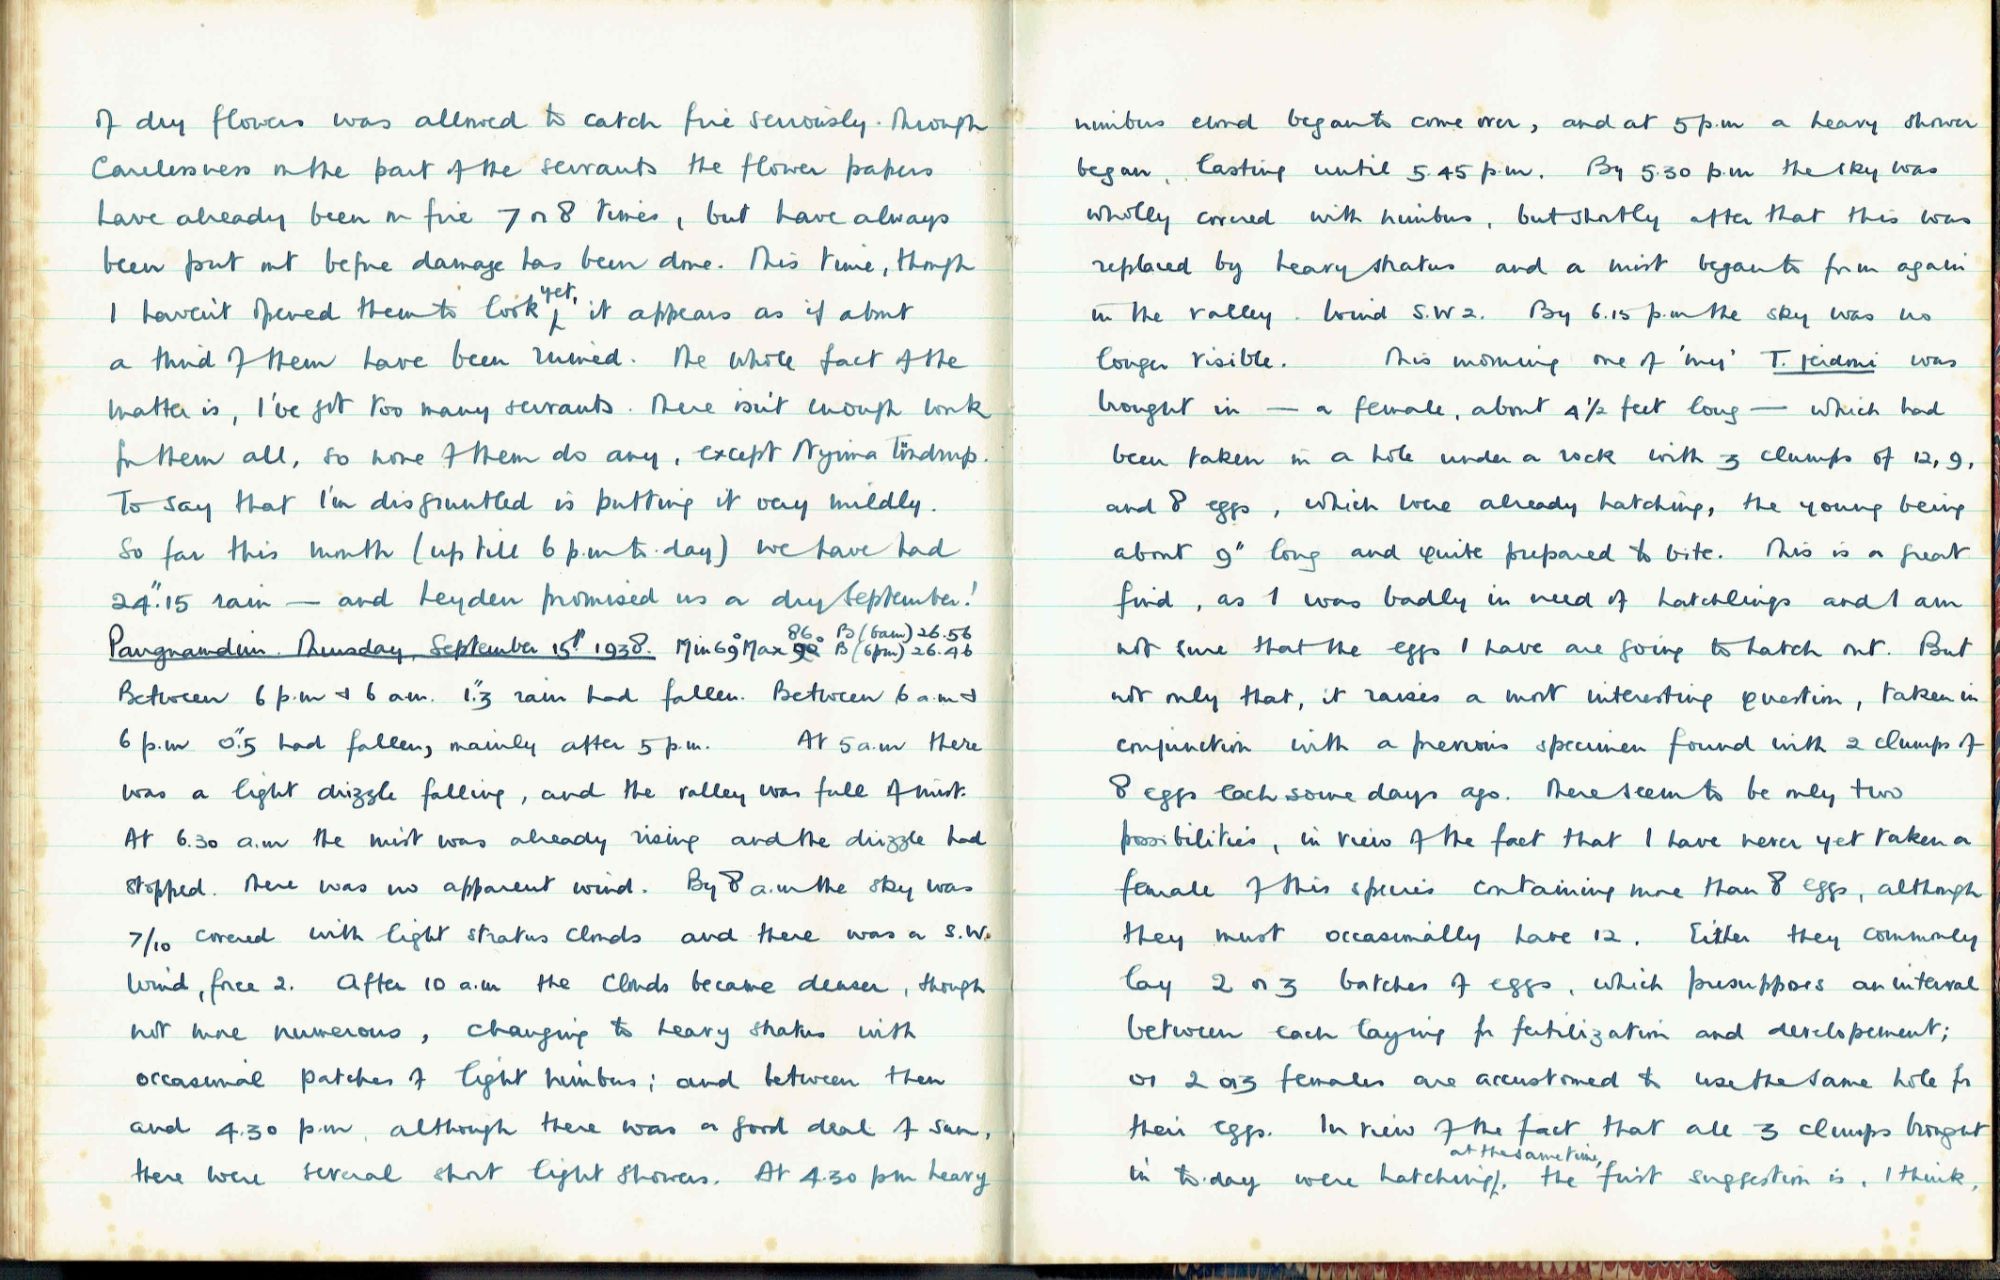 of dry flowers was allowed to catch fire seriously. Through
Carelessness on the part of the servants the flower papers
have already been on fire 7 or 8 times, but have always
been put out before damage has been done. This time, though
I haven't opened them to look yet, it appears as if about
a third of them have been ruined. The whole fact of the
matter is, I've got too many servants. There isn't enough work
for them all, so none of them do any, except Nyima Töndrup.
To say that I'm disgruntled is putting it very mildly.
So far this month (up till 6 p.m to-day) we have had
24".15 rain — and Leyden promised us a dry September!
Pangnamdim. Thursday, September 15th 1938. Min 69° Max 86° B (6am) 26.56 B (6pm) 26.46
Between 6 p.m & 6 am. 1".3 rain had fallen. Between 6 a.m &
6 p.m 0".5 had fallen, mainly after 5 p.m. At 5 a.m there
was a light drizzle falling, and the valley was full of mist.
At 6.30 a.m the mist was already rising and the drizzle had
stopped. There was no apparent wind. By 8 a.m the sky was
7/10 covered with light stratus clouds and there was a S.W.
wind, force 2. After 10 a.m the clouds became denser, though
not more numerous, changing to heavy stratus with
occasional patches of light nimbus; and between then
and 4.30 p.m, although there was a good deal of sun,
there were several short light showers. At 4.30 pm heavy
nimbus cloud began to come over, and at 5 p.m a heavy shower
began, lasting until 5.45 p.m. By 5.30 p.m the sky was
wholly covered with nimbus, but shortly after that this was
replaced by heavy stratus and a mist began to form again
in the valley. Wind S.W 2. By 6.15 p.m the sky was no
longer visible. This morning one of 'my' T. was
brought in — a female, about 4½ feet long — which had
been taken in a hole under a rock with 3 clumps of 12, 9,
and 8 eggs, which were already hatching, the young being
about 9" long and quite prepared to bite. This is a great
find, as I was badly in need of hatchlings and I am
not sure that the eggs I have are going to hatch out. But
not only that, it raises a most interesting question, taken in
conjunction with a previous specimen found with 2 clumps of
8 eggs each some days ago. There seem to be only two
possibilities, in view of the fact that I have never yet taken a
female of this species containing more than 8 eggs, although
they must occasionally have 12. Either they commonly
lay 2 or 3 batches of eggs, which presupposes an interval
between each laying for fertilization and developement;
or 2 or 3 females are accustomed to use the same hole for
their eggs. In view of the fact that all 3 clumps brought
in to-day were hatching at the same time, the first suggestion is, I think,